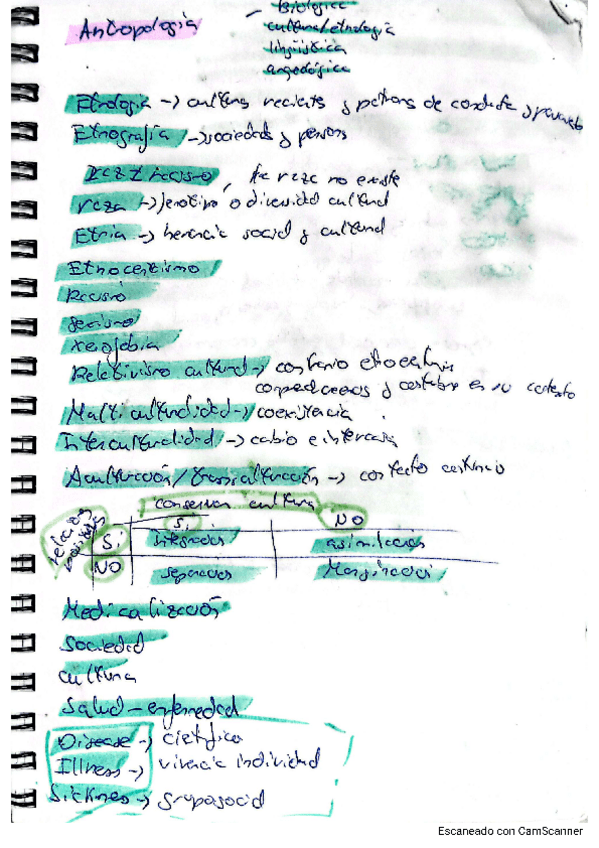 Antropología
Biológica
cultural/etnología
lingüística
Etnología → culturas recientes y patrones de conducta y
Etnografía → sociedades y personas
Raza ≠ racismo, la raza no existe
raza → fenotipo o diversidad cultural
Etnia → herencia social y cultural
Etnocentrismo
Racismo
sexismo
xenofobia
Relativismo cultural → contrario etnocentrismo
y costumbre en su contexto
Multiculturalidad → coexistencia
Interculturalidad → cambio e
Aculturación/transculturación → contacto continuo
conservar cultura
Si NO
relaciones
Si Integración asimilación
NO separación Marginación
Medicalización
Sociedad
cultura
Salud-enfermedad
Disease → científico
Illness → vivencia individual
Sickness → grupo social
Escaneado con CamScanner